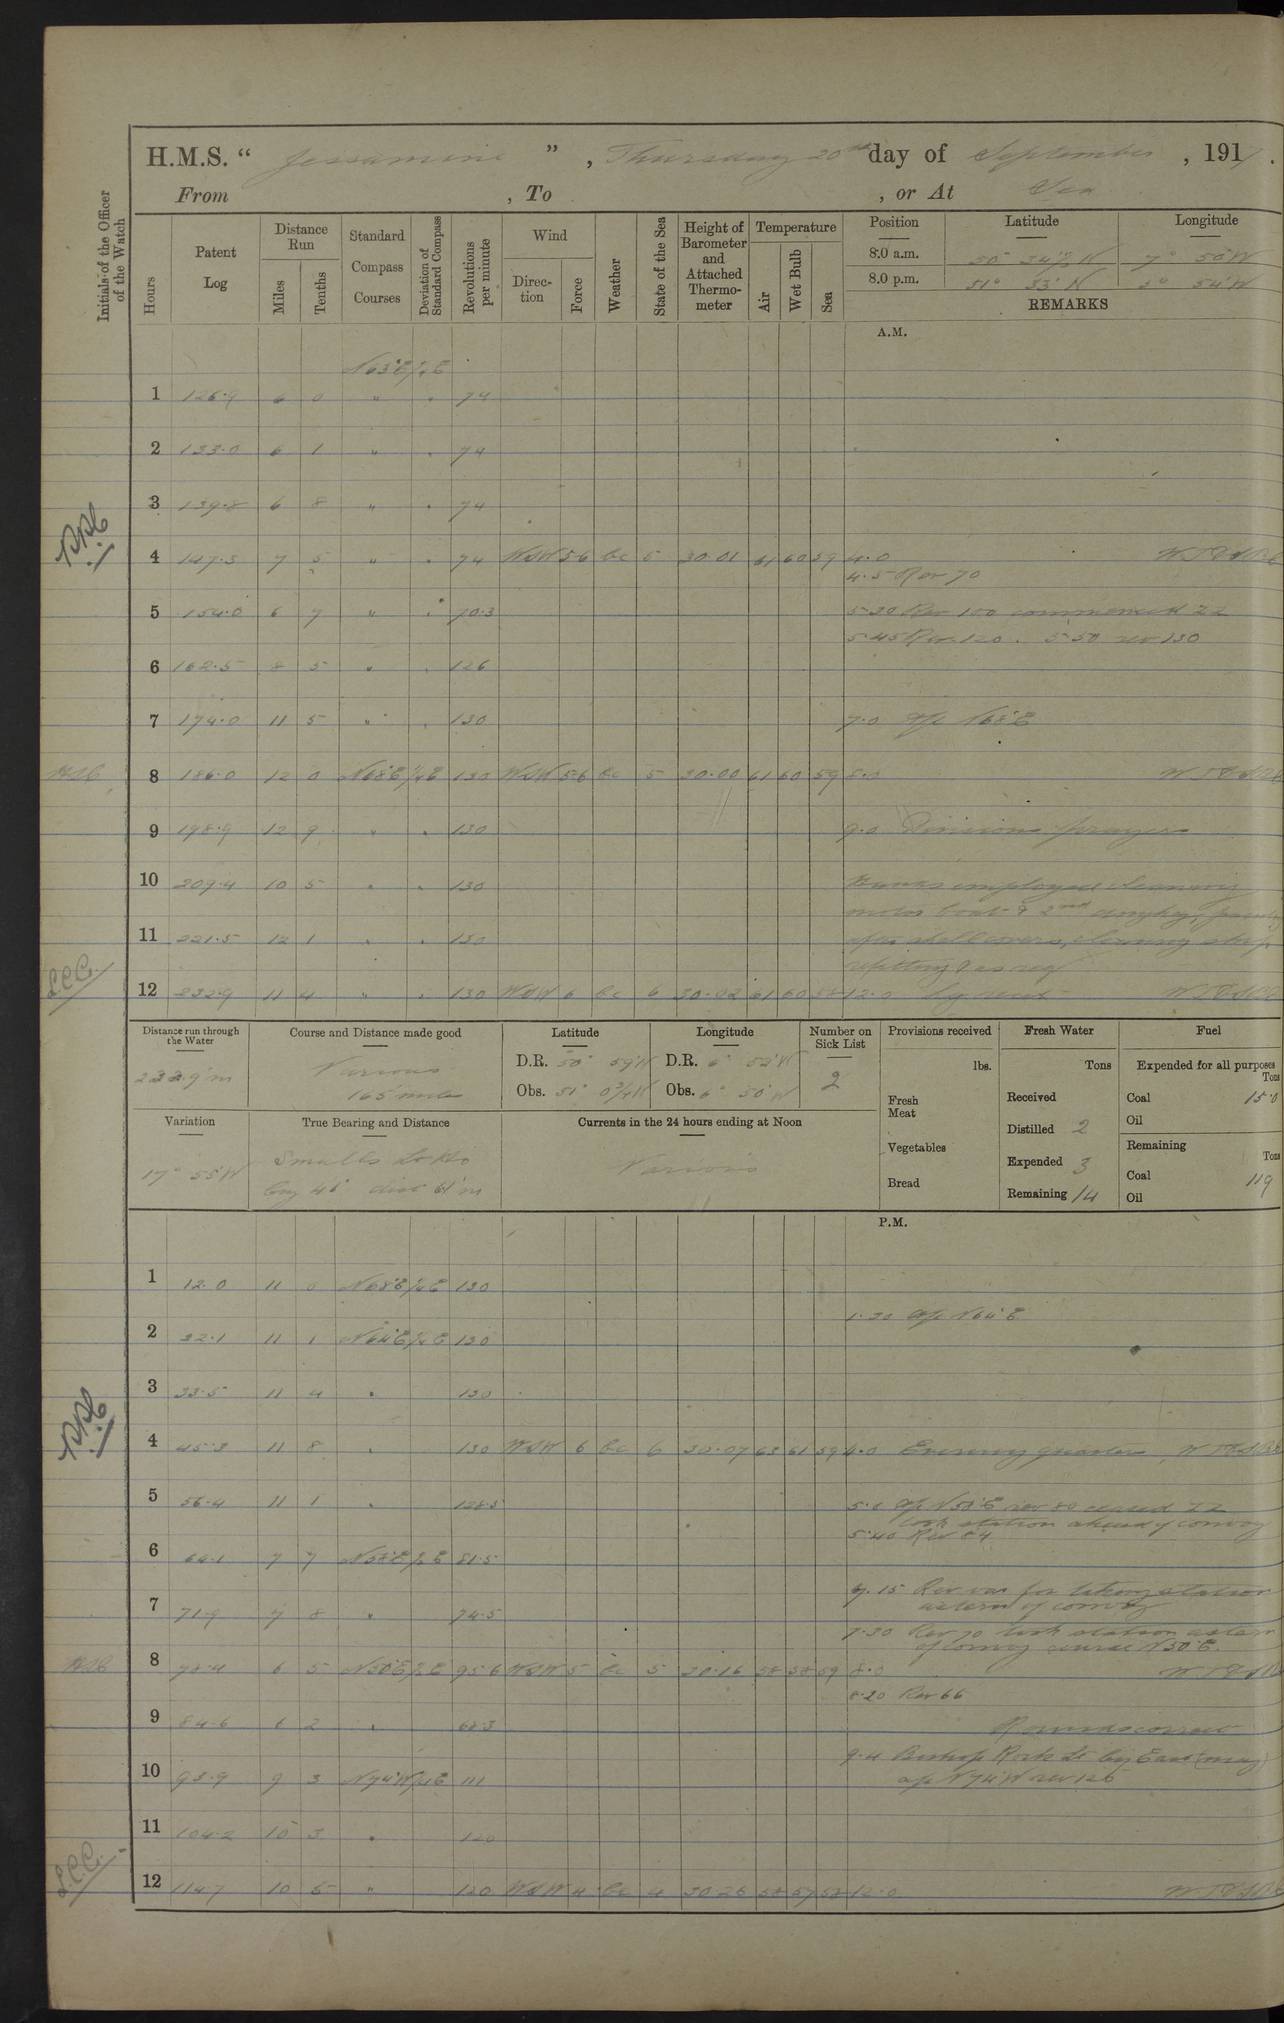 H.M.S. " Jessamine ", Thursday 20th day of September, 1917.
From , To , or At Sea
Initials of the Officer of the Watch
Hours
Patent Log
Distance Run
Miles
Tenths
Standard Compass Courses
Deviation of Standard Compass
Revolutions per minute
Wind
Direction
Force
Weather
State of the Sea
Height of Barometer and Attached Thermometer
Temperature
Air
Wet Bulb
Sea
Position Latitude Longitude
8.0 a.m. 50° 34½ N 7° 50' W
8.0 p.m. 51° 33' N 5° 54' W
REMARKS
A.M.
N63°E ¼E
1 126.9 6 0 " " 74
2 133.0 6 1 " " 74
3 139.8 6 8 " " 74
4 147.3 7 5 " " 74 WSW 56 bc 5 30.01 61 60 59 4.0
4.5 Rev 70
5 154.0 6 7 " " 70.3 5.30 Rev 100 commenced ZZ
5.45 Rev 120. 5.50 rev 130
6 162.5 8 5 " " 126
7 174.0 11 5 " " 130 7.0 a/c N68°E
8 186.0 12 0 N68°E ¼E 130 WSW 56 bc 5 30.00 61 60 59 8.0
9 198.9 12 9 " " 130 9.0 Divisions prayers
10 209.4 10 5 " " 130 Hands employed cleaning
motor boat & 2nd dinghy,
11 221.5 12 1 " " 130 shell covers, cleaning ship,
refitting & as req
12 232.9 11 4 " " 130 WSW 6 bc 6 30.02 61 60 58 12.0
L.C.C.
Distance run through the Water
232.9 m
Course and Distance made good
Various
165 miles
Latitude
D.R. 50° 59' N
Obs. 51° 0¾ N
Longitude
D.R. 6° 52' W
Obs. 6° 50' W
Number on Sick List
2
Provisions received
lbs.
Fresh Meat
Vegetables
Bread
Fresh Water
Tons
Received
Distilled 2
Expended 3
Remaining 14
Fuel
Expended for all purposes
Tons
Coal 15.0
Oil
Remaining
Tons
Coal 119
Oil
Variation
17° 55' W
True Bearing and Distance
Smalls Lt Ho
brg 46° dist 61 m
Currents in the 24 hours ending at Noon
Various
P.M.
1 12.0 11 0 N68°E ¼E 130
1.30 a/c N64°E
2 22.1 11 1 N64°E ¼E 130
3 33.5 11 4 " 130
4 45.3 11 8 " 130 WSW 6 bc 6 30.07 63 61 59 4.0 Evening quarters
5 56.4 11 1 " 128.5 5.0 a/c rev 80 ceased ZZ
took station ahead of convoy
5.40 Rev 84
6 64.1 7 7 81.5
7.15 Rev var for taking station
astern of convoy
7 71.9 7 8 " 74.5
7.30 Rev 70 took station astern
of convoy course N50°E.
8 78.4 6 5 N50°E 95.6 WSW 5 bc 5 30.16 58 58 59 8.0
8.20 Rev 66
9 84.6 6 2 " 68.3 Rounds correct
9.4 Bishop Rock Lt brg East (mag)
a/c N74°W rev 126
10 93.9 9 3 N74°W 111
11 104.2 10 3 " 120
12 114.7 10 5 " 120 WSW 4 bc 4 30.26 58 57 58 12.0
L.C.C.